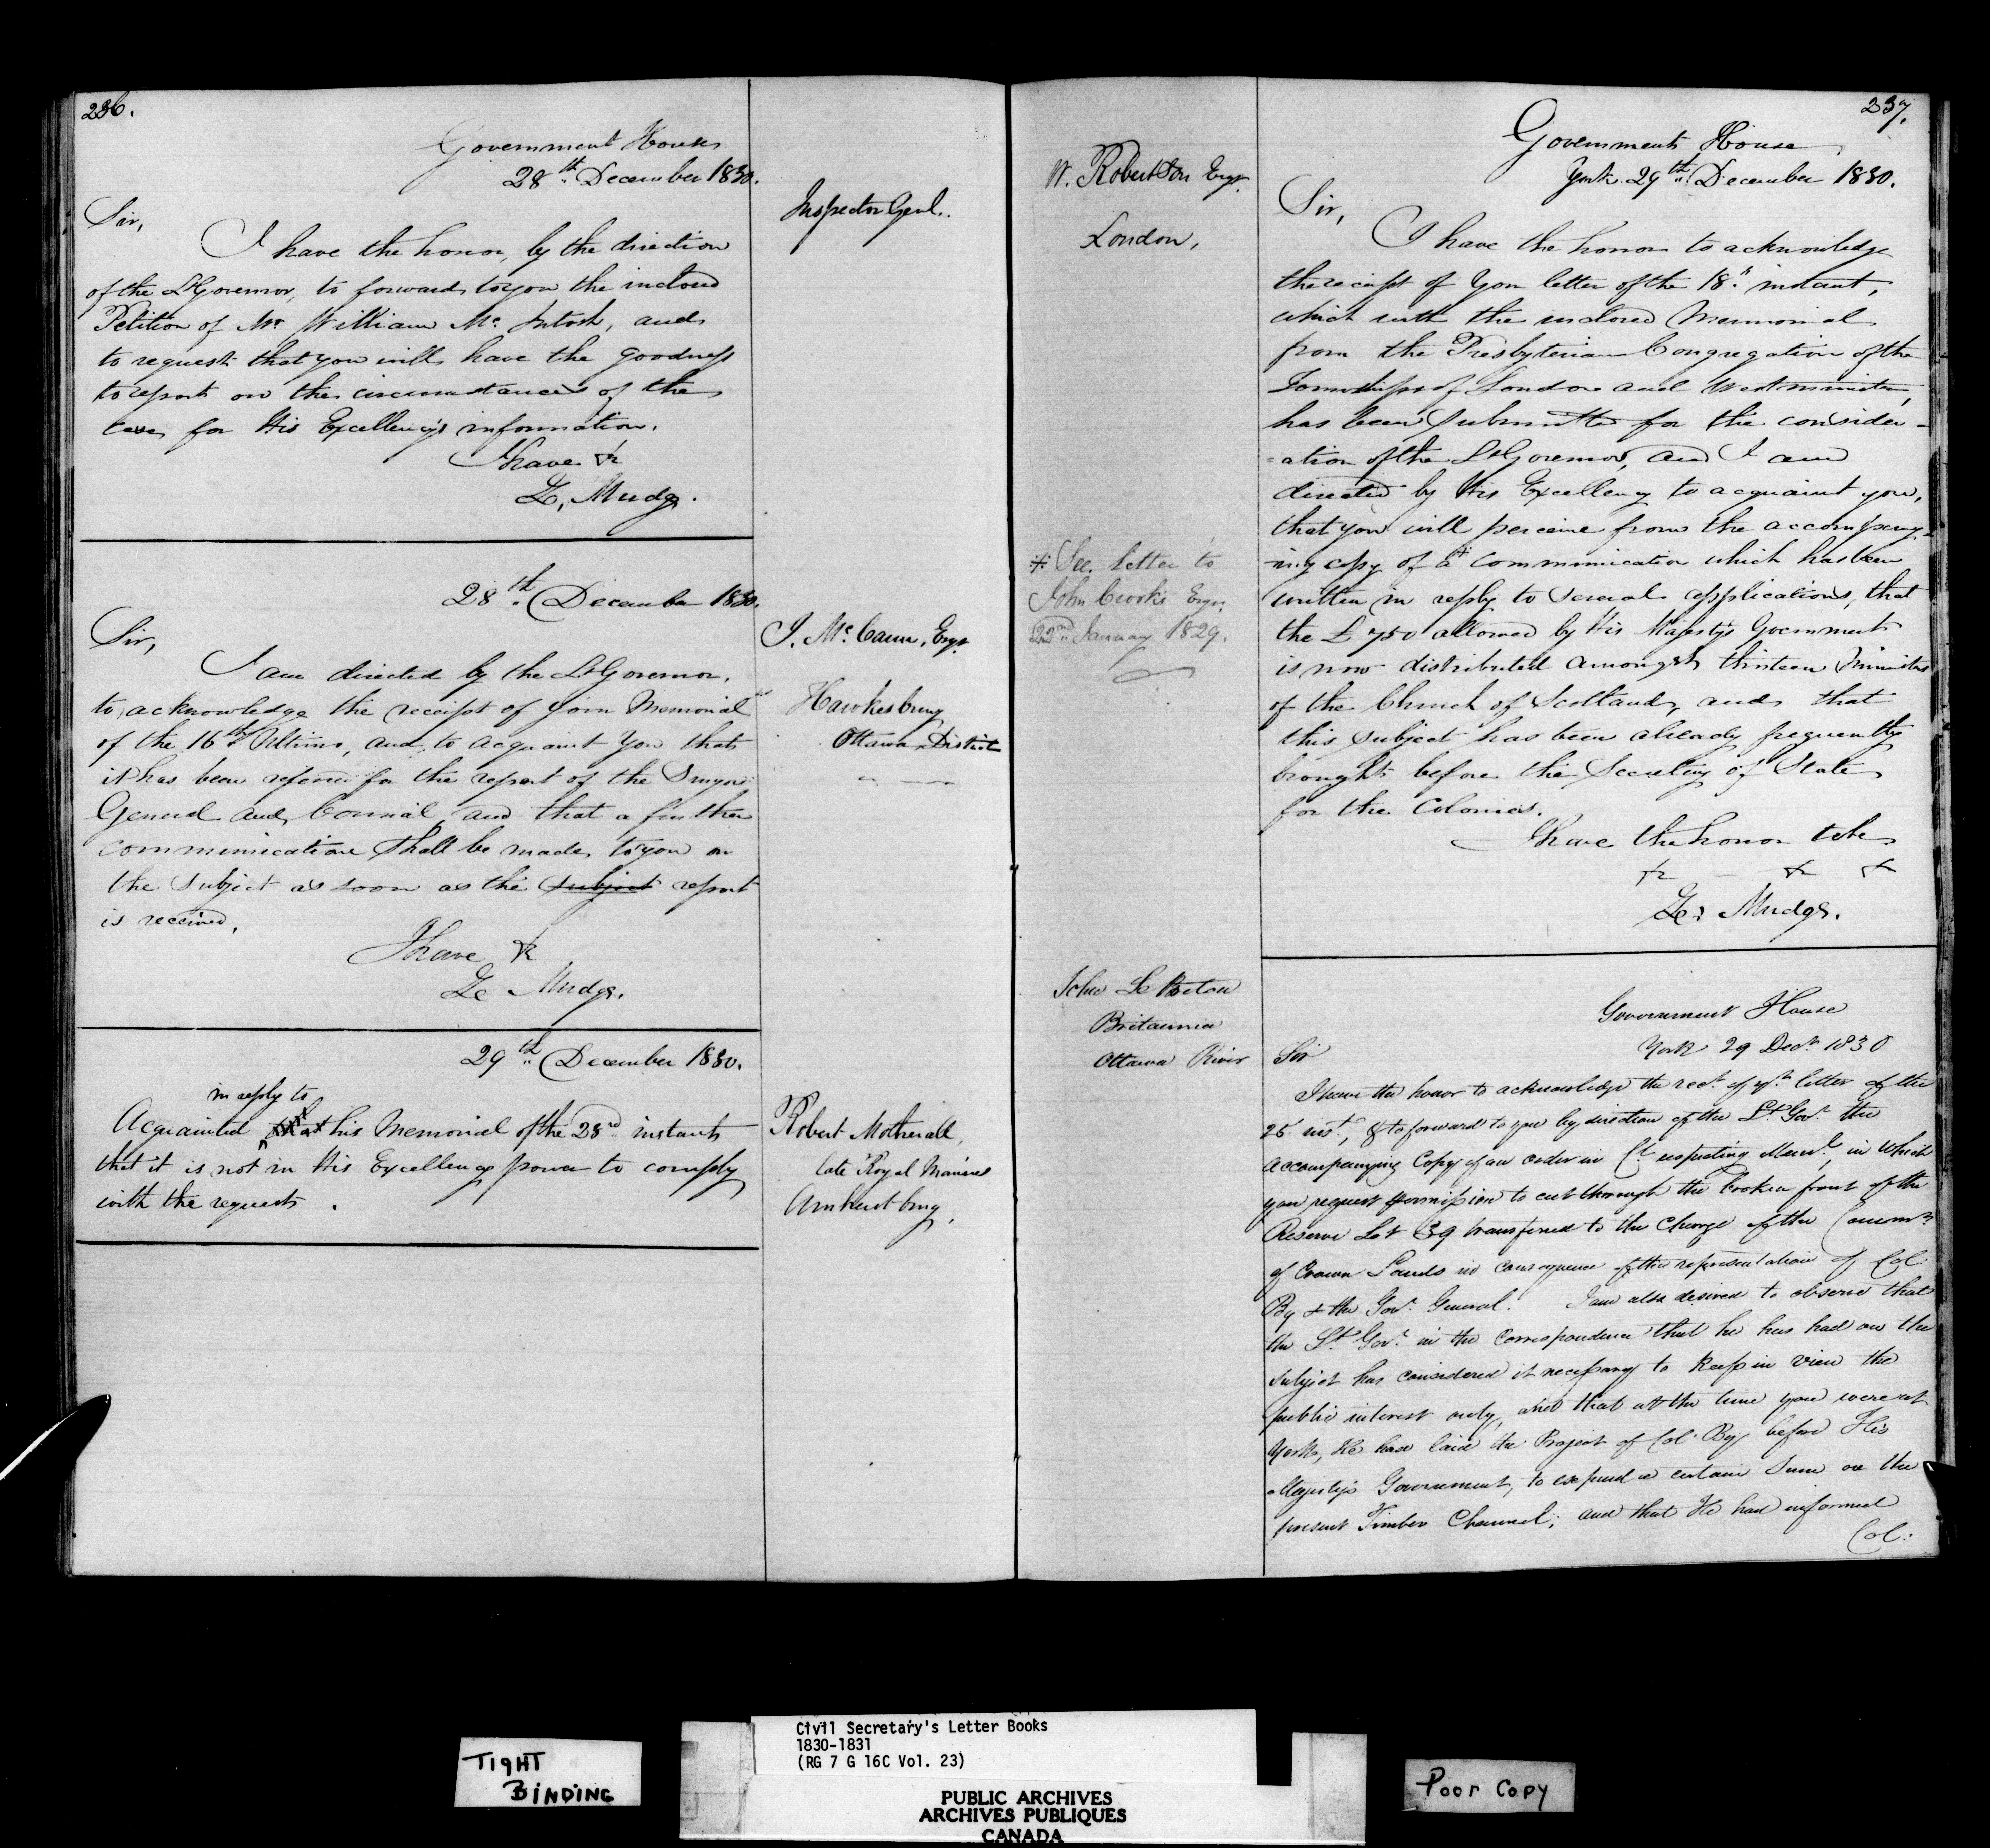 236.
Government House
28th December 1830.
Inspector Genl.
Sir,
I have the honor, by the direction
of the Lt Governor, to forward to you the inclosed
Petition of Mr William Mc Intosh, and
to request that you will have the goodness
to report on the circumstances of the
case for His Excellency's information.
I have &c
Z, Mudge.
28th December 1830.
J. Mc Cann, Esqr
Hawkesbury
Ottawa District
Sir,
I am directed by the Lt Governor,
to acknowledge the receipt of your Memorial
of the 16th Ultimo, and to acquaint you that
it has been referred for the report of the Surveyor
General and Council and that a further
communication shall be made to you on
the subject as soon as the subject report
is received.
I have &c
Z Mudge.
29th December 1830.
Robert Motherall,
late Royal Marines
Amherstburg,
in reply to
Acquainted that his Memorial of the 23rd instant
that it is not in His Excellency power to comply
with the request.
237.
Government House
York 29th December 1830.
W. Robertson Esqr
London,
Sir,
I have the honor to acknowledge
the receipt of your letter of the 18th instant,
which with the inclosed Memorial
from the Presbyterian Congregation of the
Townships of London and Westminster,
has been submitted for the consider-
-ation of the Lt Governor, and I am
directed by His Excellency to acquaint you,
that you will perceive from the accompany-
-ing copy of a * communication which has been
written in reply to several applications, that
the £750 allowed by His Majesty's Government
is now distributed amongst thirteen Ministers
of the Church of Scotland, and that
this subject has been already frequently
brought before the Secretary of State
for the Colonies.
I have the honor to be
&c &c &c
Z. Mudge.
* See letter to
John Crooks Esqr
22nd January 1829.
Government House
York 29 Decr 1830
John Le Breton
Britannia
Ottawa River
Sir
I have the honor to acknowledge the rect of yr letter of the
25 inst, & to forward to you by direction of the Lt Govr the
accompanying Copy of an order in Cl respecting Meml, in which
you request permission to cut through the broken front of the
Reserve Lot 39 transferred to the Charge of the Commr
of Crown Lands in consequence of the representation of Col:
By & the Govr General. I am also desired to observe that
the Lt Govr in the Correspondence that he has had on the
subject has considered it necessary to keep in view the
public interest only, and that at the time you were at
York, He had laid the Project of Col. By before His
Majesty's Government, to expend a certain sum on the
present Timber Channel; and that He had informed
Col:
TIGHT
BINDING
Civil Secretary's Letter Books
1830-1831
(RG 7 G 16C Vol. 23)
PUBLIC ARCHIVES
ARCHIVES PUBLIQUES
CANADA
Poor Copy